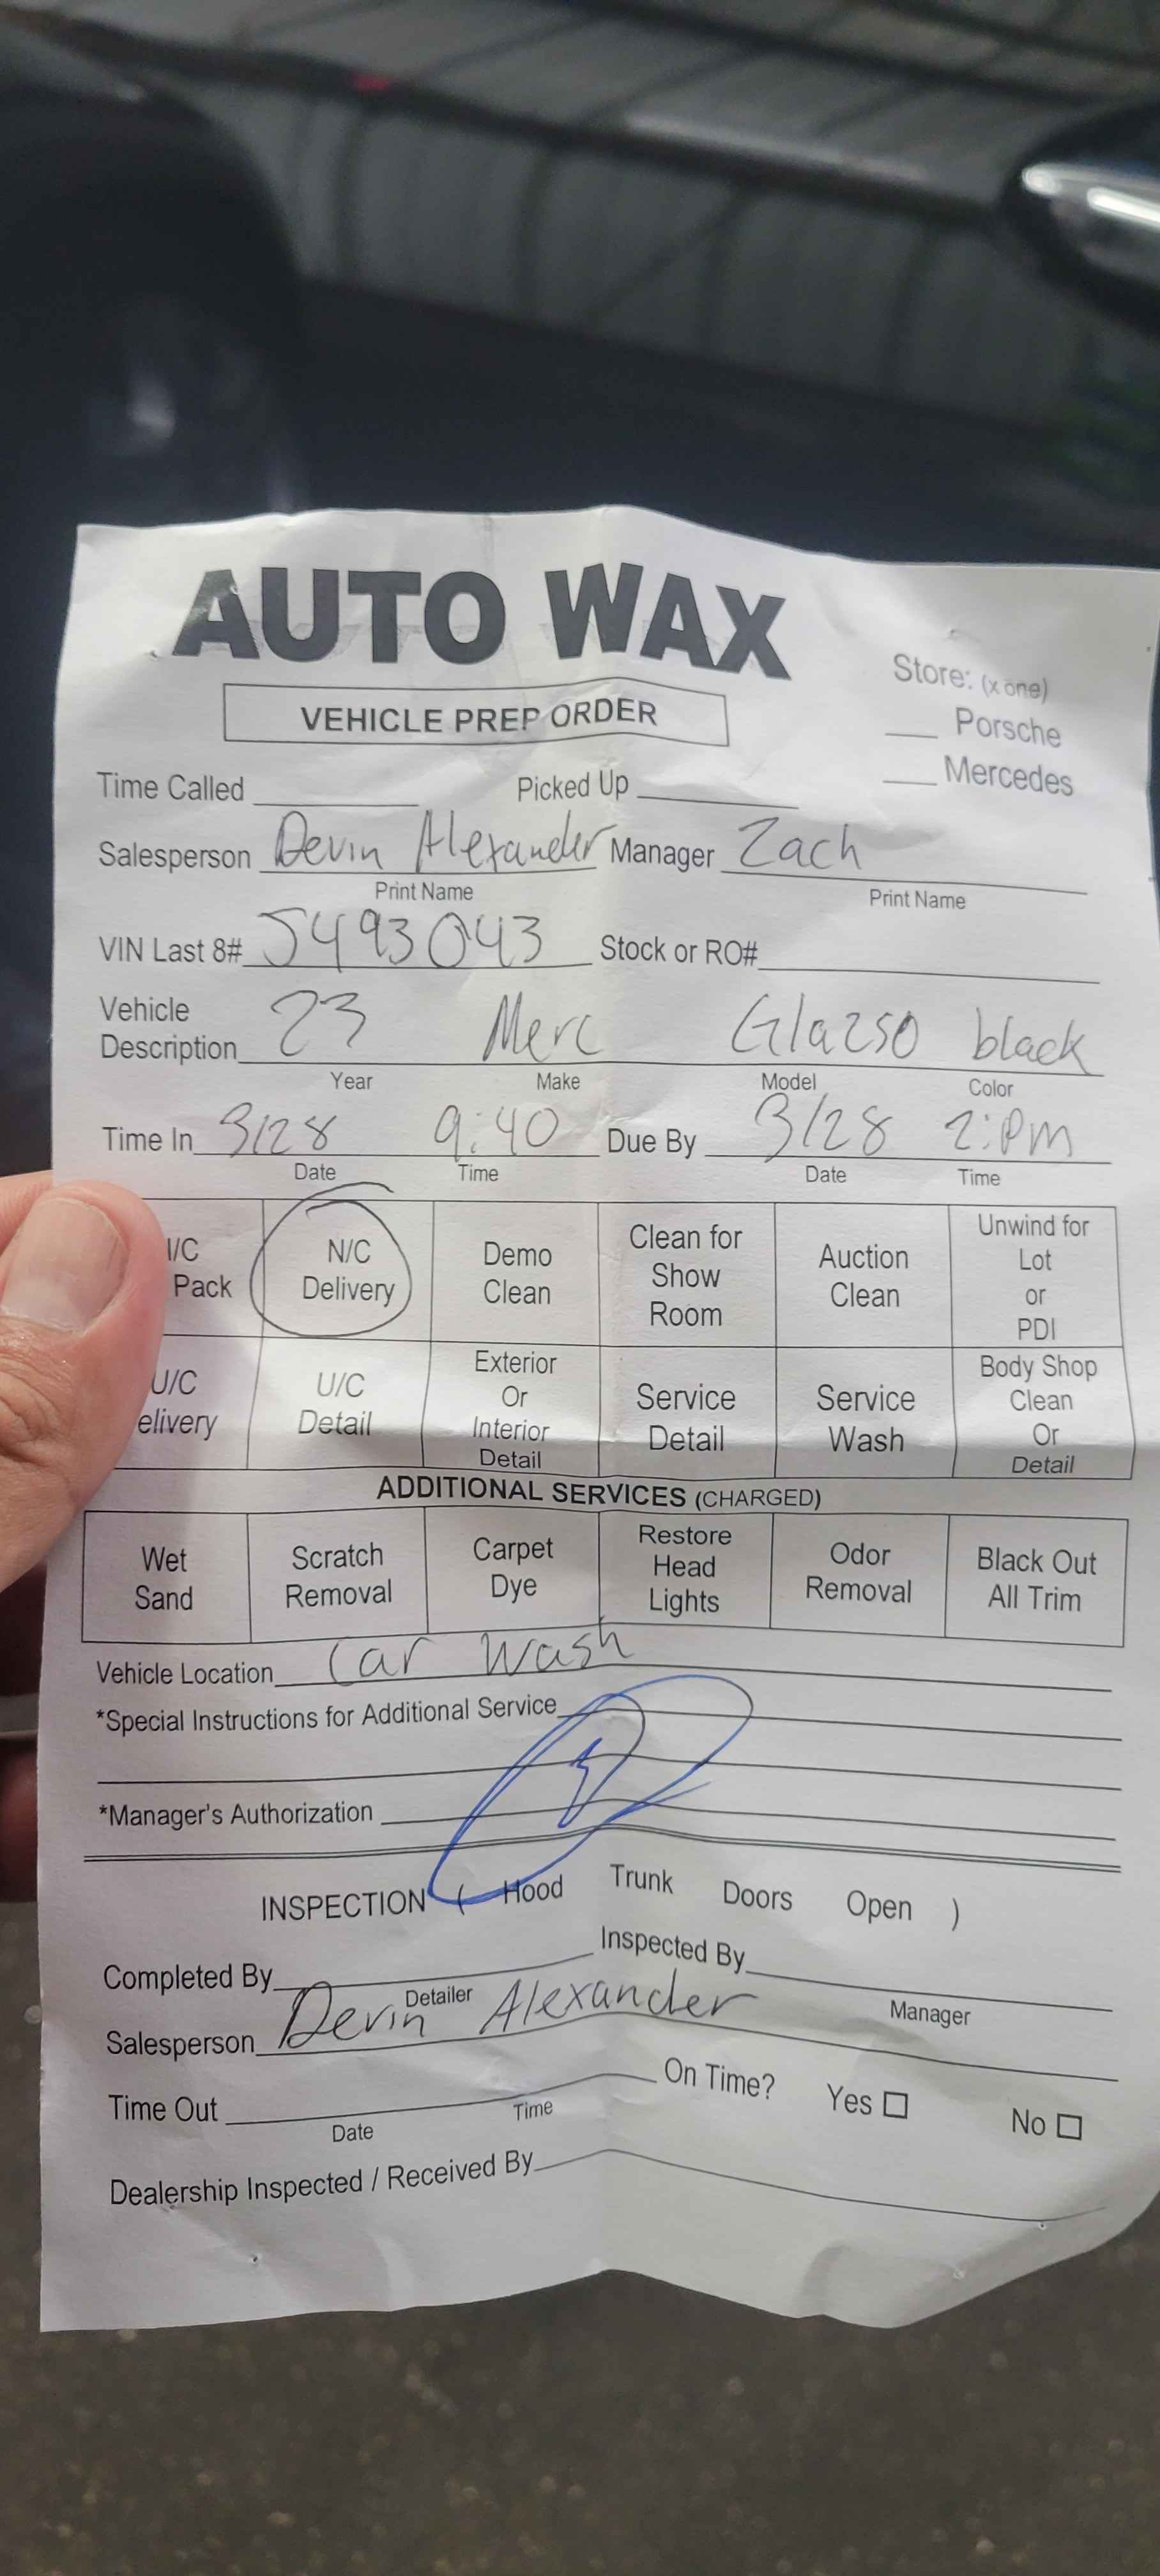 AUTO WAX
Store: (x one)
VEHICLE PREP ORDER
___ Porsche
___ Mercedes
Time Called ___ Picked Up ___
Salesperson Devin Alexander Manager Zach
Print Name Print Name
VIN Last 8# J493043 Stock or RO# ___
Vehicle Description 23 Merc Gla250 black
Year Make Model Color
Time In 3/28 9:40 Due By 3/28 2:Pm
Date Time Date Time
/C Pack N/C Delivery Demo Clean Clean for Show Room Auction Clean Unwind for Lot or PDI
U/C elivery U/C Detail Exterior Or Interior Detail Service Detail Service Wash Body Shop Clean Or Detail
ADDITIONAL SERVICES (CHARGED)
Wet Sand Scratch Removal Carpet Dye Restore Head Lights Odor Removal Black Out All Trim
Vehicle Location Car Wash
*Special Instructions for Additional Service
*Manager's Authorization
INSPECTION ( Hood Trunk Doors Open )
Completed By ___ Inspected By ___
Detailer Manager
Salesperson Devin Alexander
Time Out ___ On Time? Yes □ No □
Date Time
Dealership Inspected / Received By